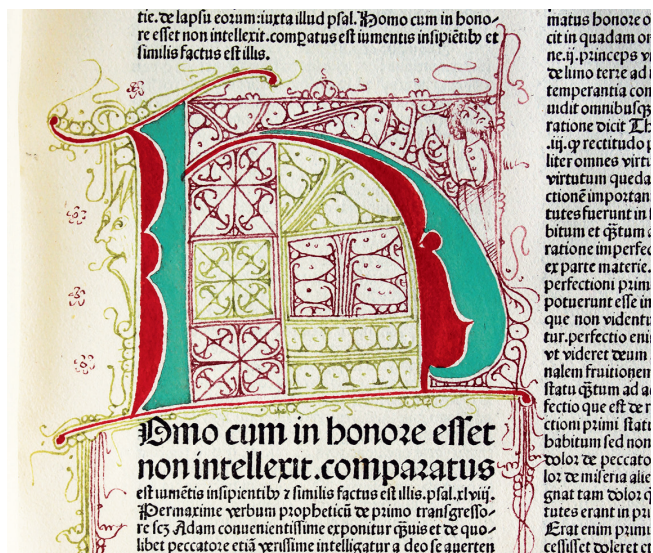 tie. de lapsu eorum: iuxta illud psal. Homo cum in hono-
re esset non intellexit. cōparatus est iumentis insipiētib⁹ et
similis factus est illis.
Omo cum in honore esset
non intellexit. comparatus
est iumētis insipientib⁹ ⁊ similis factus est illis. psal. xlviij.
Permaxime verbum propheticū de primo transgresso-
re scꝫ Adam conuenientissime exponitur q̄uis et de quo-
libet peccatore etiā verissime intelligatur a deo se auerten
matus honore o
cit in quadam o
ne. ij. princeps v
de limo terre ad
temperantia con
ratione dicit
.iij. ꝙ rectitudo
liter omnes virtu
virtutum queda
ctionē importan
tutes fuerunt in
bitum et q̄tum
ratione imperfec
ex parte materie.
perfectioni primi
potuerunt esse in
que non videntu
tur. perfectio eni
vt videret deum
nalem fruitionem
statu q̄tum ad
fectio que est de
ctioni primi statu
habitum sed non
dolor de peccato
lor de miseria alie
gnat tam dolor
tutes erant in pri
Erat enim primu
cessisset doleret et